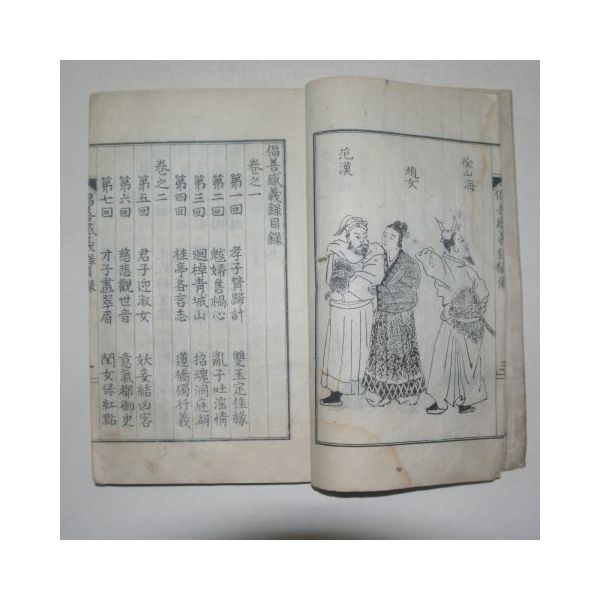 徐山海
趙女
范漢
倡善感義錄目錄
卷之一
第一回 孝子贊歸計 雙玉定佳緣
第二回 妬婦售禍心 亂子吐淫情
第三回 廻棹青城山 招魂洞庭湖
第四回 桂亭各言志 蓮橋獨行義
卷之二
第五回 君子迎淑女 妖妾結凶客
第六回 慈悲觀世音 意氣都御史
第七回 才子畵翠眉 閨女保紅點